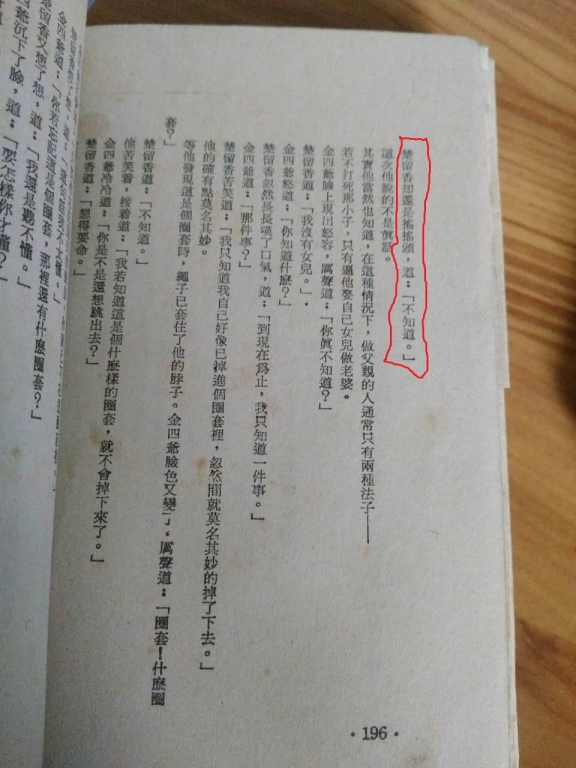 楚留香却還是搖搖頭，道：「不知道。」
這次他說的不是眞話。
其實他當然也知道，在這種情況下，做父親的人通常只有兩種法子——
若不打死那小子，只有逼他娶自己女兒做老婆。
金四爺臉上現出怒容，厲聲道：「你眞不知道？」
楚留香道：「我沒有女兒。」
金四爺怒道：「你知道什麽？」
楚留香忽然長長嘆了口氣，道：「到現在爲止，我只知道一件事。」
金四爺道：「那件事？」
楚留香苦笑道：「我只知道我自己好像已掉進個圈套裡，忽然間就莫名其妙的掉了下去。」
他的確有點莫名其妙。
等他發現這是個圈套時，繩子已套住了他的脖子。金四爺臉色又變了，厲聲道：「圈套！什麽圈
套？」
楚留香道：「不知道。」
他苦笑着，接着道：「我若知道這是個什麽樣的圈套，就不會掉下來了。」
金四爺冷冷道：「你是不是還想跳出去？」
楚留香道：「想得要命。」
金四爺道：「你若忘記這是個圈套，那裡還有什麽圈套？」
楚留香又想了想，道：「我還是聽不懂。」
金四爺沉下了臉，道：「要怎樣你才懂？」
·196·